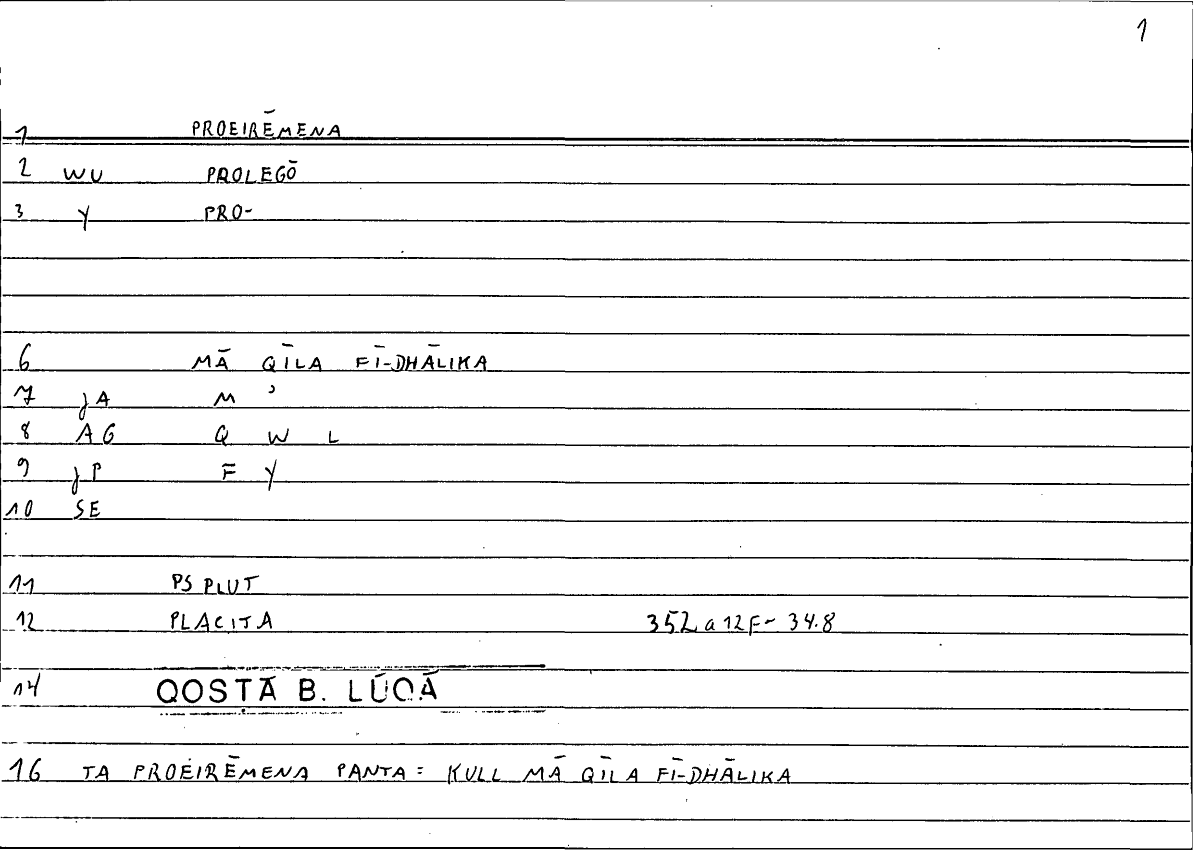 1
1 PROEIRĒMENA
2 WU PROLEGŌ
3 Y PRO-
6 MĀ QĪLA FĪ-DHĀLIKA
7 JA M ʾ
8 AG Q W L
9 JP F Y
10 SE
11 PS PLUT
12 PLACITA 352 a 12F- 34.8
14 QOSTĀ B. LŪQĀ
16 TA PROEIRĒMENA PANTA = KULL MĀ QĪLA FĪ-DHĀLIKA